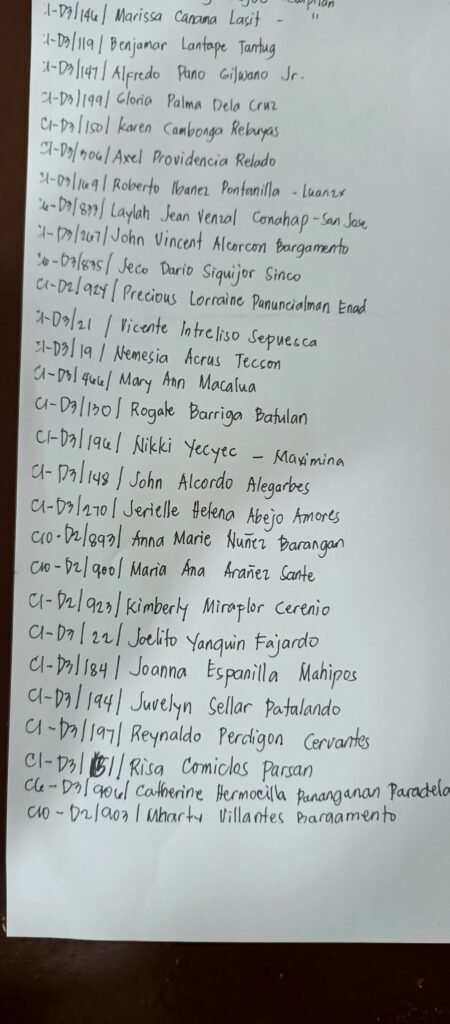 C1-D3/146/ Marissa Canama Lasit - "
C1-D3/119/ Benjamar Lantape Tantug
C1-D3/147/ Alfredo Pano Gilwano Jr.
C1-D3/199/ Gloria Palma Dela Cruz
C1-D3/150/ Karen Cambonga Rebuyas
C1-D3/306/ Axel Providencia Relado
C1-D3/169/ Roberto Ibanez Pontanilla - Luanzx
D3/833/ Laylah Jean Venzal Conahap - San Jose
1-D3/267/ John Vincent Alcorcon Bargamento
D3/835/ Jeco Dario Siquijor Sinco
C1-D2/924/ Precious Lorraine Panuncialman Enad
1-D3/21 / Vicente Intreliso Sepuesca
1-D3/19 / Nemesia Acrus Teccon
C1-D3/466/ Mary Ann Macalua
C1-D3/130/ Rogate Barriga Batulan
C1-D3/196/ Nikki Yecyec - Maximina
C1-D3/148/ John Alcordo Alegarbes
C1-D3/270/ Jerielle Helena Abejo Amores
C10-D2/893/ Anna Marie Nuñez Barangan
C10-D2/900/ Maria Ana Arañez Sante
C1-D2/923/ Kimberly Miraplor Cerenio
C1-D3/22/ Joelito Yanquin Fajardo
C1-D3/184/ Joanna Espanilla Mahipos
C1-D3/194/ Juvelyn Sellar Patalando
C1-D3/197/ Reynaldo Perdigon Cervantes
C1-D3/ Risa Comiclos Parsan
C6-D3/906/ Catherine Hermocilla Pananganan Paradela
C10-D2/903/ Mharty Villantes Bargamento